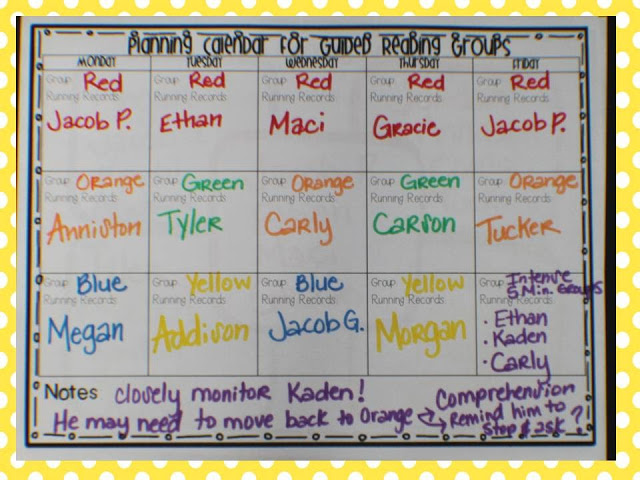 Planning Calendar for Guided Reading Groups
Monday Tuesday Wednesday Thursday Friday
Group Red Group Red Group Red Group Red Group Red
Running Records Running Records Running Records Running Records Running Records
Jacob P. Ethan Maci Gracie Jacob P.
Group Orange Group Green Group Orange Group Green Group Orange
Running Records Running Records Running Records Running Records Running Records
Anniston Tyler Carly Carson Tucker
Group Blue Group Yellow Group Blue Group Yellow Group Intense
Running Records Running Records Running Records Running Records 5 Min. Groups
Running Records
Megan Addison Jacob G. Morgan · Ethan
· Kaden
· Carly
Notes closely monitor Kaden!
He may need to move back to Orange → Comprehension
→ Remind him to
stop & ask ?